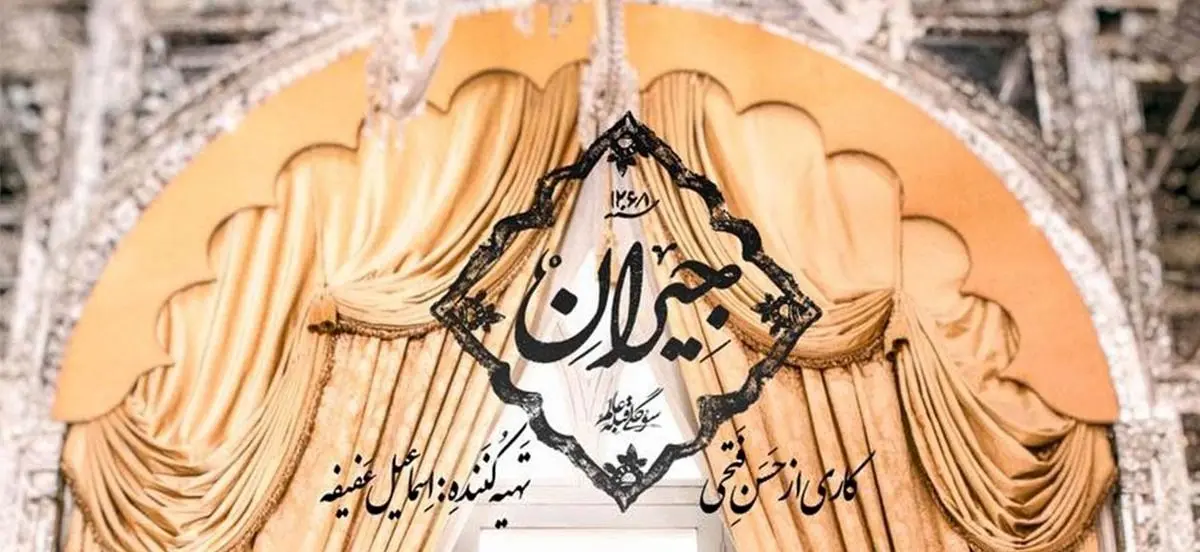 ۱۲۶۸
جِیرانِ
سوگلی قبله عالم
کاری از حَسَن فَتحی
تهیه کُنَندِه: اِسماعیل عَفیفِه